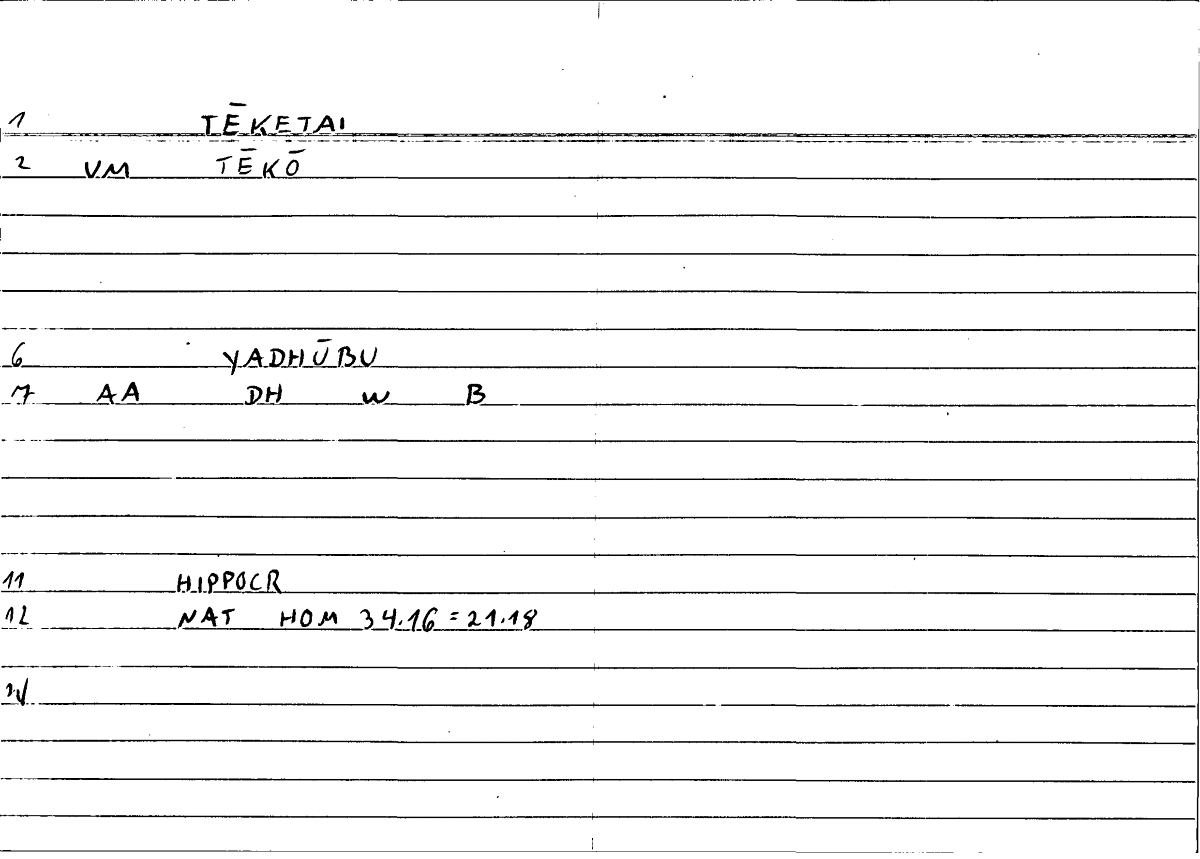 1 TĒKETAI
2 VM TĒKŌ
6 YADHŪBU
7 AA DH W B
11 HIPPOCR
12 NAT HOM 34.16 = 21.18